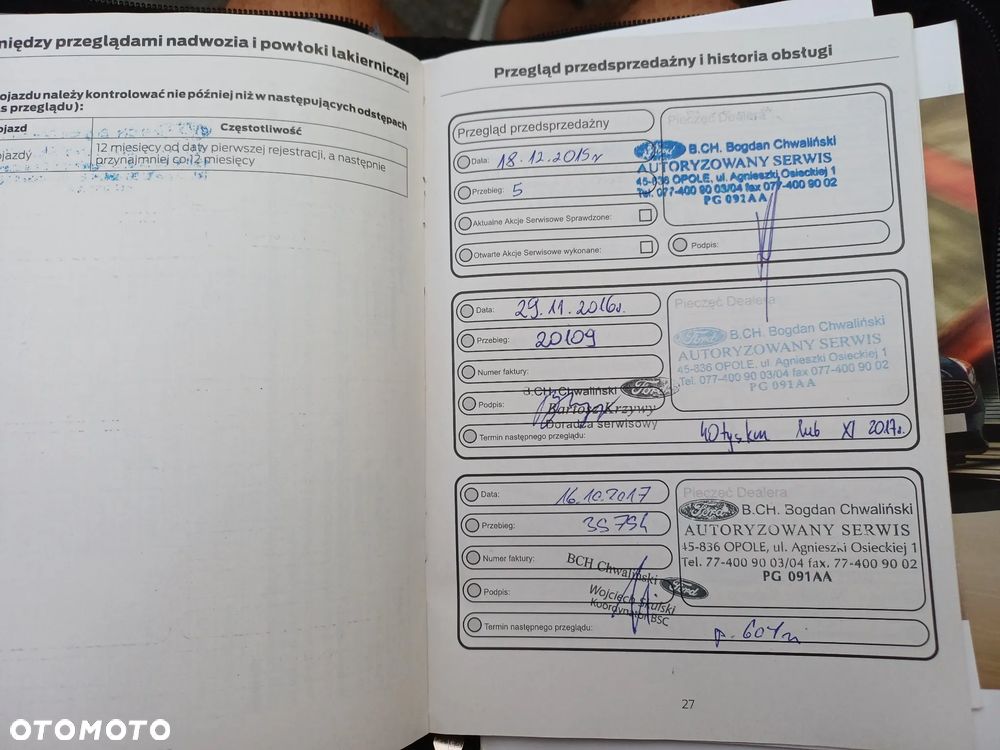 między przeglądami nadwozia i powłoki lakierniczej
ojazdu należy kontrolować nie później niż w następujących odstępach
s przeglądu):
ojazd
Częstotliwość
ojazdy
12 miesięcy od daty pierwszej rejestracji, a następnie
przynajmniej co 12 miesięcy
Przegląd przedsprzedażny i historia obsługi
Przegląd przedsprzedażny
Pieczęć Dealera
Data: 18.12.2015r
Przebieg: 5
Aktualne Akcje Serwisowe Sprawdzone:
Otwarte Akcje Serwisowe wykonane:
Ford B.CH. Bogdan Chwaliński
AUTORYZOWANY SERWIS
45-836 OPOLE, ul. Agnieszki Osieckiej 1
Tel. 077-400 90 03/04 fax 077-400 90 02
PG 091AA
Podpis:
Data: 29.11.2016r.
Przebieg: 20109
Numer faktury:
Podpis:
B.CH. Chwaliński Ford
Bartosz Krzywy
Doradca serwisowy
Pieczęć Dealera
Ford B.CH. Bogdan Chwaliński
AUTORYZOWANY SERWIS
45-836 OPOLE, ul. Agnieszki Osieckiej 1
Tel. 077-400 90 03/04 fax 077-400 90 02
PG 091AA
Termin następnego przeglądu: 40 tyskm lub XI 2017r.
Data: 16.10.2017
Przebieg: 35794
Numer faktury:
Podpis:
BCH Chwaliński Ford
Wojciech Skulski
Koordynator BSC
Pieczęć Dealera
Ford B.CH. Bogdan Chwaliński
AUTORYZOWANY SERWIS
45-836 OPOLE, ul. Agnieszki Osieckiej 1
Tel. 77-400 90 03/04 fax. 77-400 90 02
PG 091AA
Termin następnego przeglądu:
27
OTOMOTO